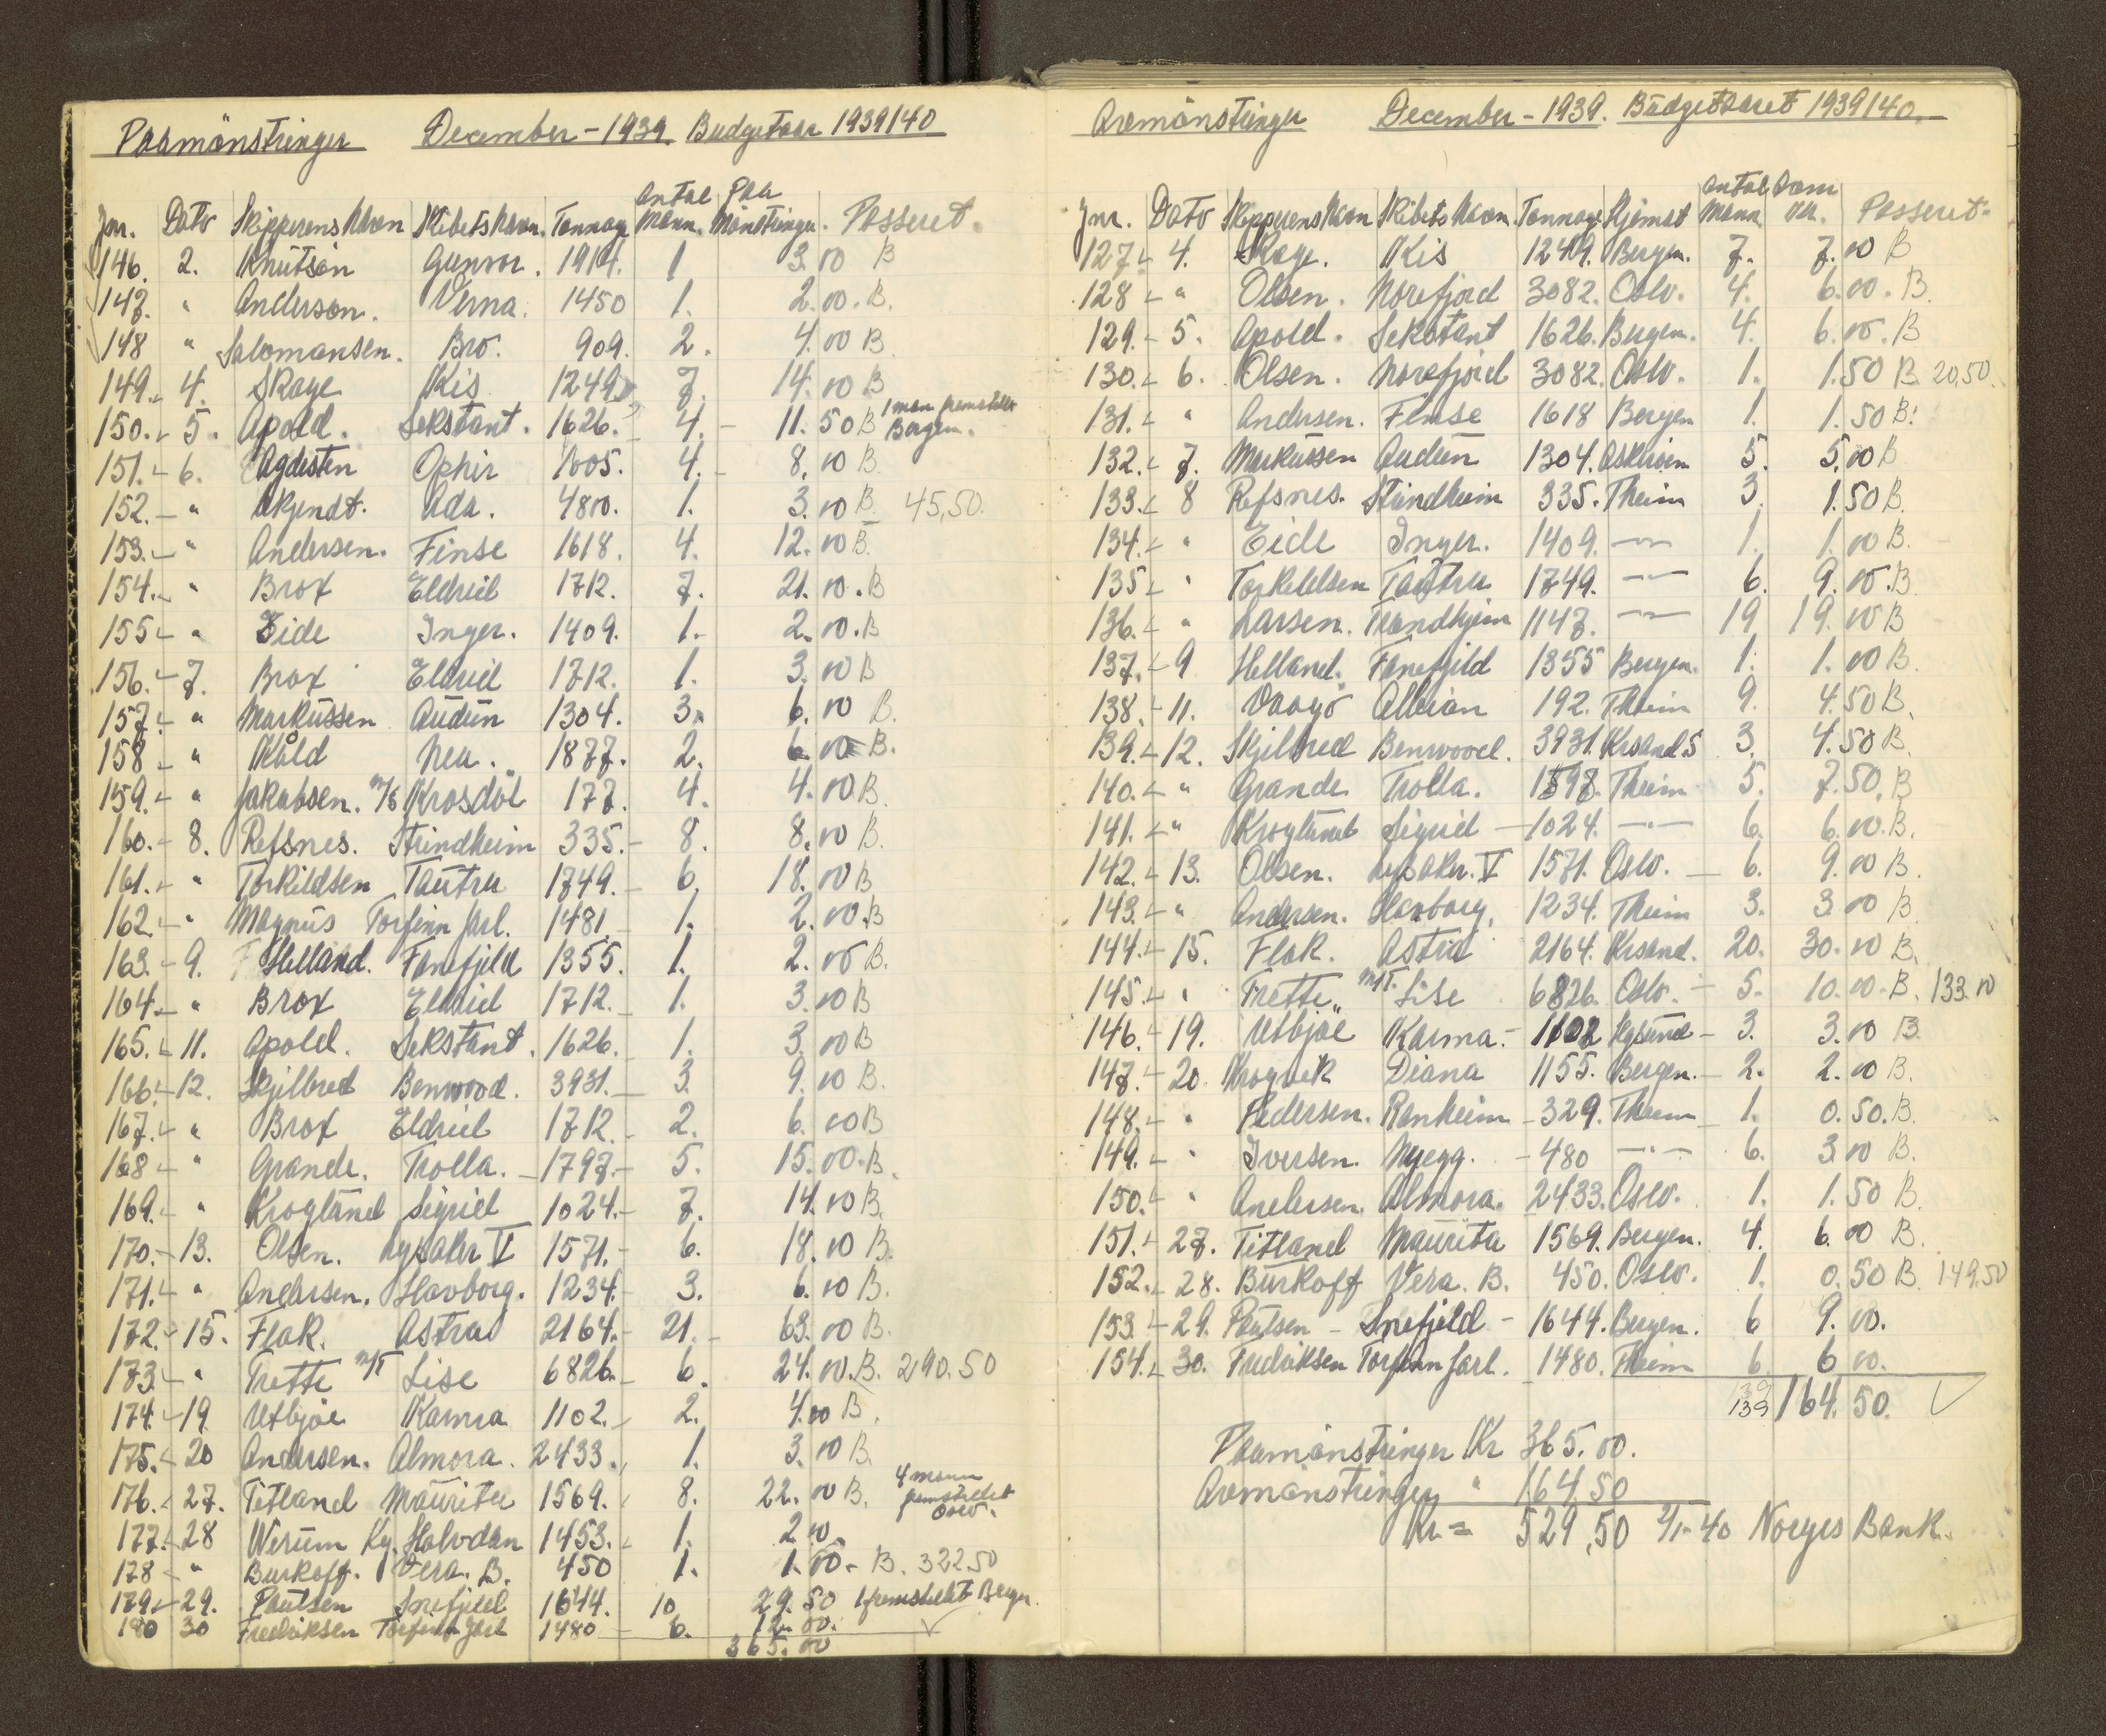 Paamönstringer December - 1939. Budgetaar 1939/40
Jnr. Dato Skipperens Navn Skibets Navn. Tonnage Antal Mann. Paa Mönstringer. Passeret.
146. 2. Knutsön Gunvor. 1914. 1 3.00 B
147. " Anderson. Verna. 1450 1. 2.00. B.
148 " Salomonsen. Bro. 909. 2. 4.00 B
149. - 4. Skage Kis 1249. 7. 14.00 B
150. - 5. Apold. Sekstant. 1626. 4. - 11.50 B 1 man fremstillet Bergen.
151. - 6. Agdesten Ophir 1005. 4. - 8.00 B.
152. - " Ada. 4800. 1. 3.00 B. 45,50.
153. - " Andersen. Finse 1618. 4. 12.00 B.
154. - " Brox Eldrid 1712. 7. 21.00. B
155 - " Eide Inger. 1409. 1. - 2.00. B
156. - 7. Brox Eldrid 1712. 1. 3.00 B
157. - " Markussen Audun 1304. 3. 6.00 B.
158 - " Kold Nea. 1877. 2. 6.00 B.
159. - " Jakobsen. m/s Krosdöl 177. 4. 4.00 B.
160. - 8. Refsnes. Strindheim 335. - 8. 8.00 B.
161. - " Torkildsen Tautra 1749. - 6. 18.00 B
162. - " Magnus Torfinn Jarl. 1481. - 1. 2.00. B
163. - 9. Helland. Fanefjeld 1355. 1. 2.00 B.
164. - " Brox Eldrid 1712. - 1. 3.00 B
165. - 11. Apold. Sekstant. 1626. - 1. 3.00 B
166. - 12. Skjelbred Benwood. 3931. - 3. 9.00 B.
167. - " Brox Eldrid 1712. - 2. 6.00 B
168 - " Grande. Trolla. - 1797. - 5. 15.00. B.
169. - " Krogtund Sigrid 1024. - 7. 14.00 B.
170. - 13. Olsen. Lysaker V 1571. - 6. 18.00 B.
171. - " Andersen. Havborg. 1234. - 3. 6.00 B.
172. - 15. Flak. Astra 2164. - 21. - 63.00 B.
173. - " Trette m/T Lise 6826. - 6. 24.00. B. 290.50
174. - 19 Utbjöe Karma 1102. - 2. 4.00 B.
175. - 20 Andersen. Almora. 2433. 1. 3.00 B.
176. - 27. Titland Maurita 1569. 8. 22.00 B. 4 mann fremstillet Oslo.
177. - 28 Wesum Kg. Halvdan 1453. 1. 2.00.
178 - " Burkoff. Vera. B. 450 1. 1.00 - B. 322 50
179. - 29. Poulsen Snefjeld 1644. 10 29.50 1 fremstillet Bergen.
180 30 Fredriksen Torfinn Jarl 1480 - 6. 12.00. ✓
365.00
Avmönstringer December - 1939. Büdgetaaret 1939/40.
Jnr. Dato Skipperens Navn Skibets Navn Tonnage Hjemst Antal Mann Sam Kr. Passeret.
127 - 4. Skage. Kis 1249. Bergen. 7. 7.00 B
128 - " Olsen. Norefjord 3082. Oslo. 4. 6.00. B.
129. - 5. Apold. Sekstant 1626. Bergen. 4. 6.00. B
130. - 6. Olsen. Norefjord 3082. Oslo. 1. 1.50 B. 20,50.
131. - " Andersen. Finse 1618 Bergen 1. 1.50 B.
132. - 7. Markussen Audun 1304. Askim 5. 5.00 B
133. - 8 Refsnes. Strindheim 335. Theim 3. 1.50 B.
134. - " Eide Inger. 1409. —"— 1. 1.00 B.
135 - " Torkildsen Tautra 1749. —"— 6. 9.00. B.
136. - " Larsen. Trondhjem 1147. —"— 19 19.00 B
137. - 9 Helland. Fanefjeld 1355 Bergen. 1. 1.00 B.
138. - 11. Vaagö Albion 192. Theim 9. 4.50 B.
139. - 12. Skjelbred Benwood. 3931. Krsand S 3. 4.50 B.
140. - " Grande Trolla. 1798. Theim 5. 7.50. B
141. - " Krogtund Sigrid - 1024. —"— 6. 6.00. B.
142. - 13. Olsen. Lysaker. V 1571. Oslo. - 6. 9.00 B.
143. - " Andersen. Havborg. 1234. Theim 3. 3.00 B.
144. - 15. Flak. Astra 2164. Krsand. 20. 30.00 B.
145. - " Trette. m/T. Lise 6826. Oslo. - 5. 10.00. B. 133.00
146. - 19. Utbjöe Karma. - 1102 Hgsund - 3. 3.00 B.
147. - 20. Krogvik Diana 1155. Bergen. - 2. 2.00 B.
148. - " Pedersen. Ranheim - 329. Theim - 1. 0.50. B.
149. - " Iversen. Nyegg. - 480 —"— 6. 3.00 B.
150. - " Andersen. Almora. 2433. Oslo. 1. 1.50 B.
151. - 27. Titland Maurita 1569. Bergen. 4. 6.00 B.
152. - 28. Burkoff Vera. B. 450. Oslo. 1. 0.50 B. 149.50
153. - 29. Poulsen - Snefjeld - 1644. Bergen. 6 9.00.
154. - 30. Fredriksen Torfinn Jarl. 1480. Theim 6. 6.00.
139
139 164.50. ✓
Paamönstringer Kr 365.00.
Avmönstringer " 164,50
Kr = 529,50 2/1-40 Norges Bank.